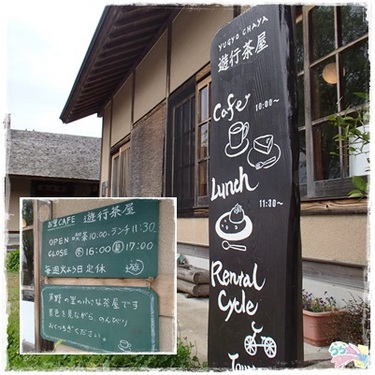 YUGYO CHAYA
遊行茶屋
Cafe
10:00~
Lunch
11:30~
Rental
Cycle
お食CAFE 遊行茶屋
OPEN 喫茶10:00・ランチ11:30
CLOSE 冬16:00 夏17:00
毎週火よう日定休
芦野の里の小さな茶屋です
景色を見ながら のんびり
おくつろぎください。